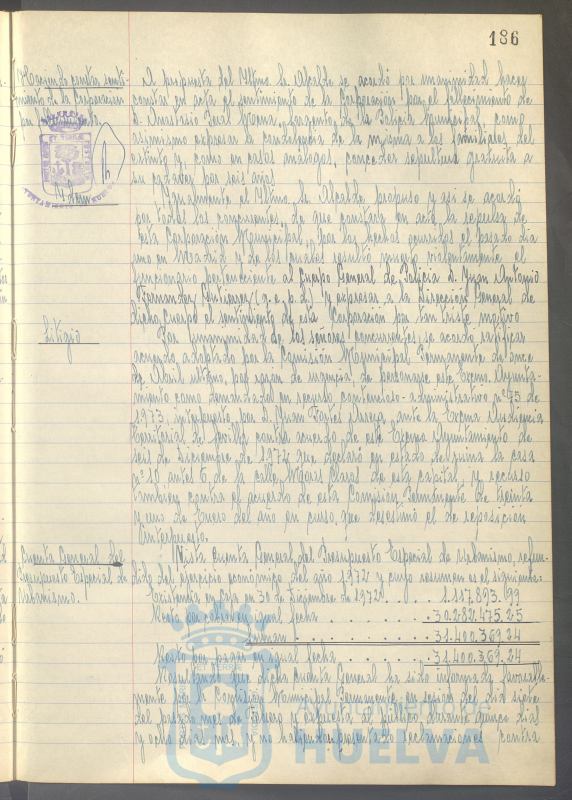 186
Haciendo constar senti-
miento de la Corporación
por
Idem
Litigio
Cuenta General del
Presupuesto Especial de
Urbanismo.
A propuesta del Iltmo. Sr. Alcalde se acordó por unanimidad hacer
constar en acta el sentimiento de la Corporación por el fallecimiento de
D. Anastasio Real sargento de la Policía Municipal, como
asimismo expresar la condolencia de la misma a los familiares del
extinto y, como en casos análogos, conceder sepultura gratuita a
su cadaver por seis años
Igualmente el Iltmo. Sr. Alcalde propuso y así se acordó
por todos los concurrentes, de que constara en acta la repulsa de
esta Corporación Municipal, por los hechos ocurridos el pasado dia
uno en Madrid y de los cuales resultó muerto violentamente el
funcionario perteneciente al Cuerpo General de Policía D. Juan Antonio
Fernandez Gutierrez (q. e. p. d.) y expresar a la Dirección General de
dicho Cuerpo el sentimiento de esta Corporación por tan triste motivo
Por unanimidad de los señores concurrentes, se acordó ratificar
acuerdo adoptado por la Comisión Municipal Permanente de once
de Abril ultimo, por razon de urgencia, de personarse este Excmo. Ayunta-
miento como demandado en recurso contencioso-administrativo nº 75 de
1973, interpuesto por D. Juan ante la Excma. Audiencia
Territorial de Sevilla contra acuerdo de este Excmo. Ayuntamiento de
seis de Diciembre de 1972 que declaró en estado de ruina la casa
nº 10 antes 6 de la calle de esta capital, y recurso
tambien contra el acuerdo de esta Comisión Permanente de treinta
y uno de Enero del año en curso, que desestimó el de reposición
interpuesto.
Vista Cuenta General del Presupuesto Especial de Urbanismo,
del ejercicio económico del año 1972 y cuyo resumen es el siguiente:
Existencia en Caja en 31 de Diciembre de 1972 . . . . . 1.117.893.99
Resto por cobrar en igual fecha . . . . . . . 30.282.475.25
Suman . . . . . . . 31.400.369.24
Resto por pagar en igual fecha . . . . . . 31.400.369.24
Resultando que dicha Cuenta General ha sido informada favorable-
mente por la Comisión Municipal Permanente en sesión del dia siete
del pasado mes de Febrero y expuesta al público durante quince dias
y ocho dias mas, y no habiendose presentado reclamaciones contra
Ayuntamiento de
HUELVA